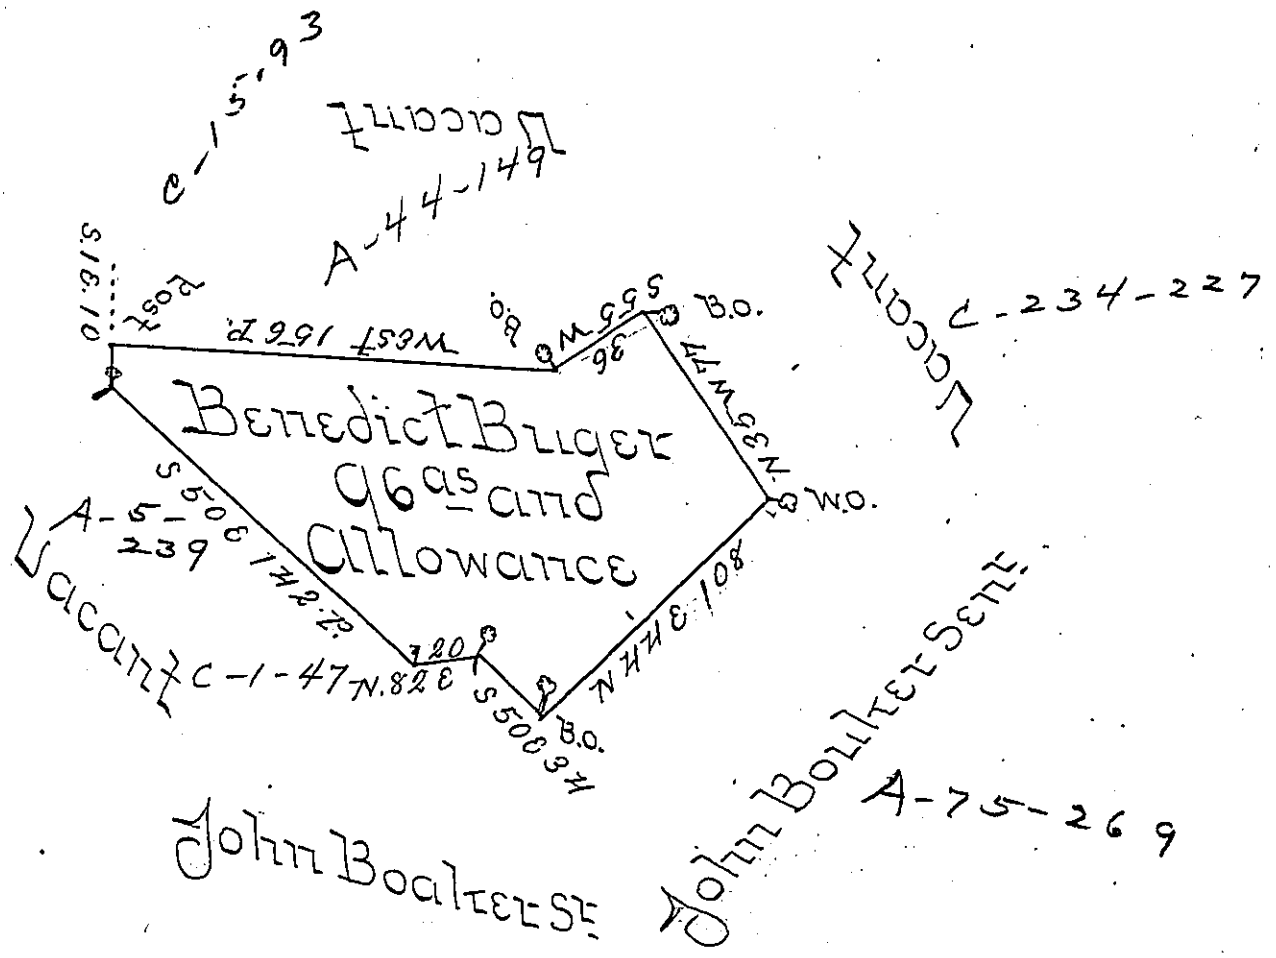 C-15-93
Vacant
A-44-149
S.1E.10
Post
West 156 P.
B.O.
S 55 W
36
B.O.
N 35 W 77
Vacant
C-234-227
W.O.
Benedict Bruger
96 as and
Allowance
S 50 E 142 P.
A-5-
239
Vacant
C-1-47
N.82 E
20
S 50 E 34
B.O.
N 44 E 108
John Boulter Senr
A-75-269
John Boalter Sr